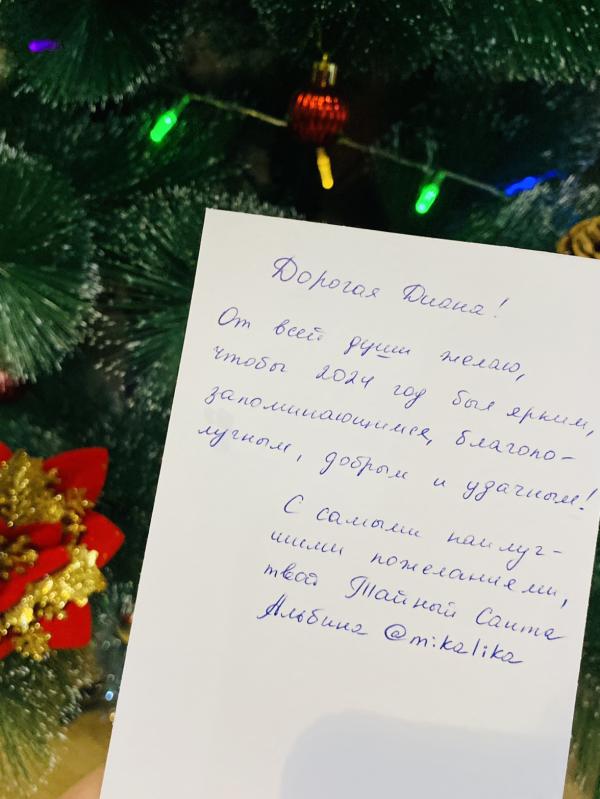 Дорогая Диана!
От всей души желаю,
чтобы 2024 год был ярким,
запоминающимся, благопо-
лучным, добрым и удачным!
С самыми наилуч-
шими пожеланиями,
твой Тайный Санта
Альбина @mikalika